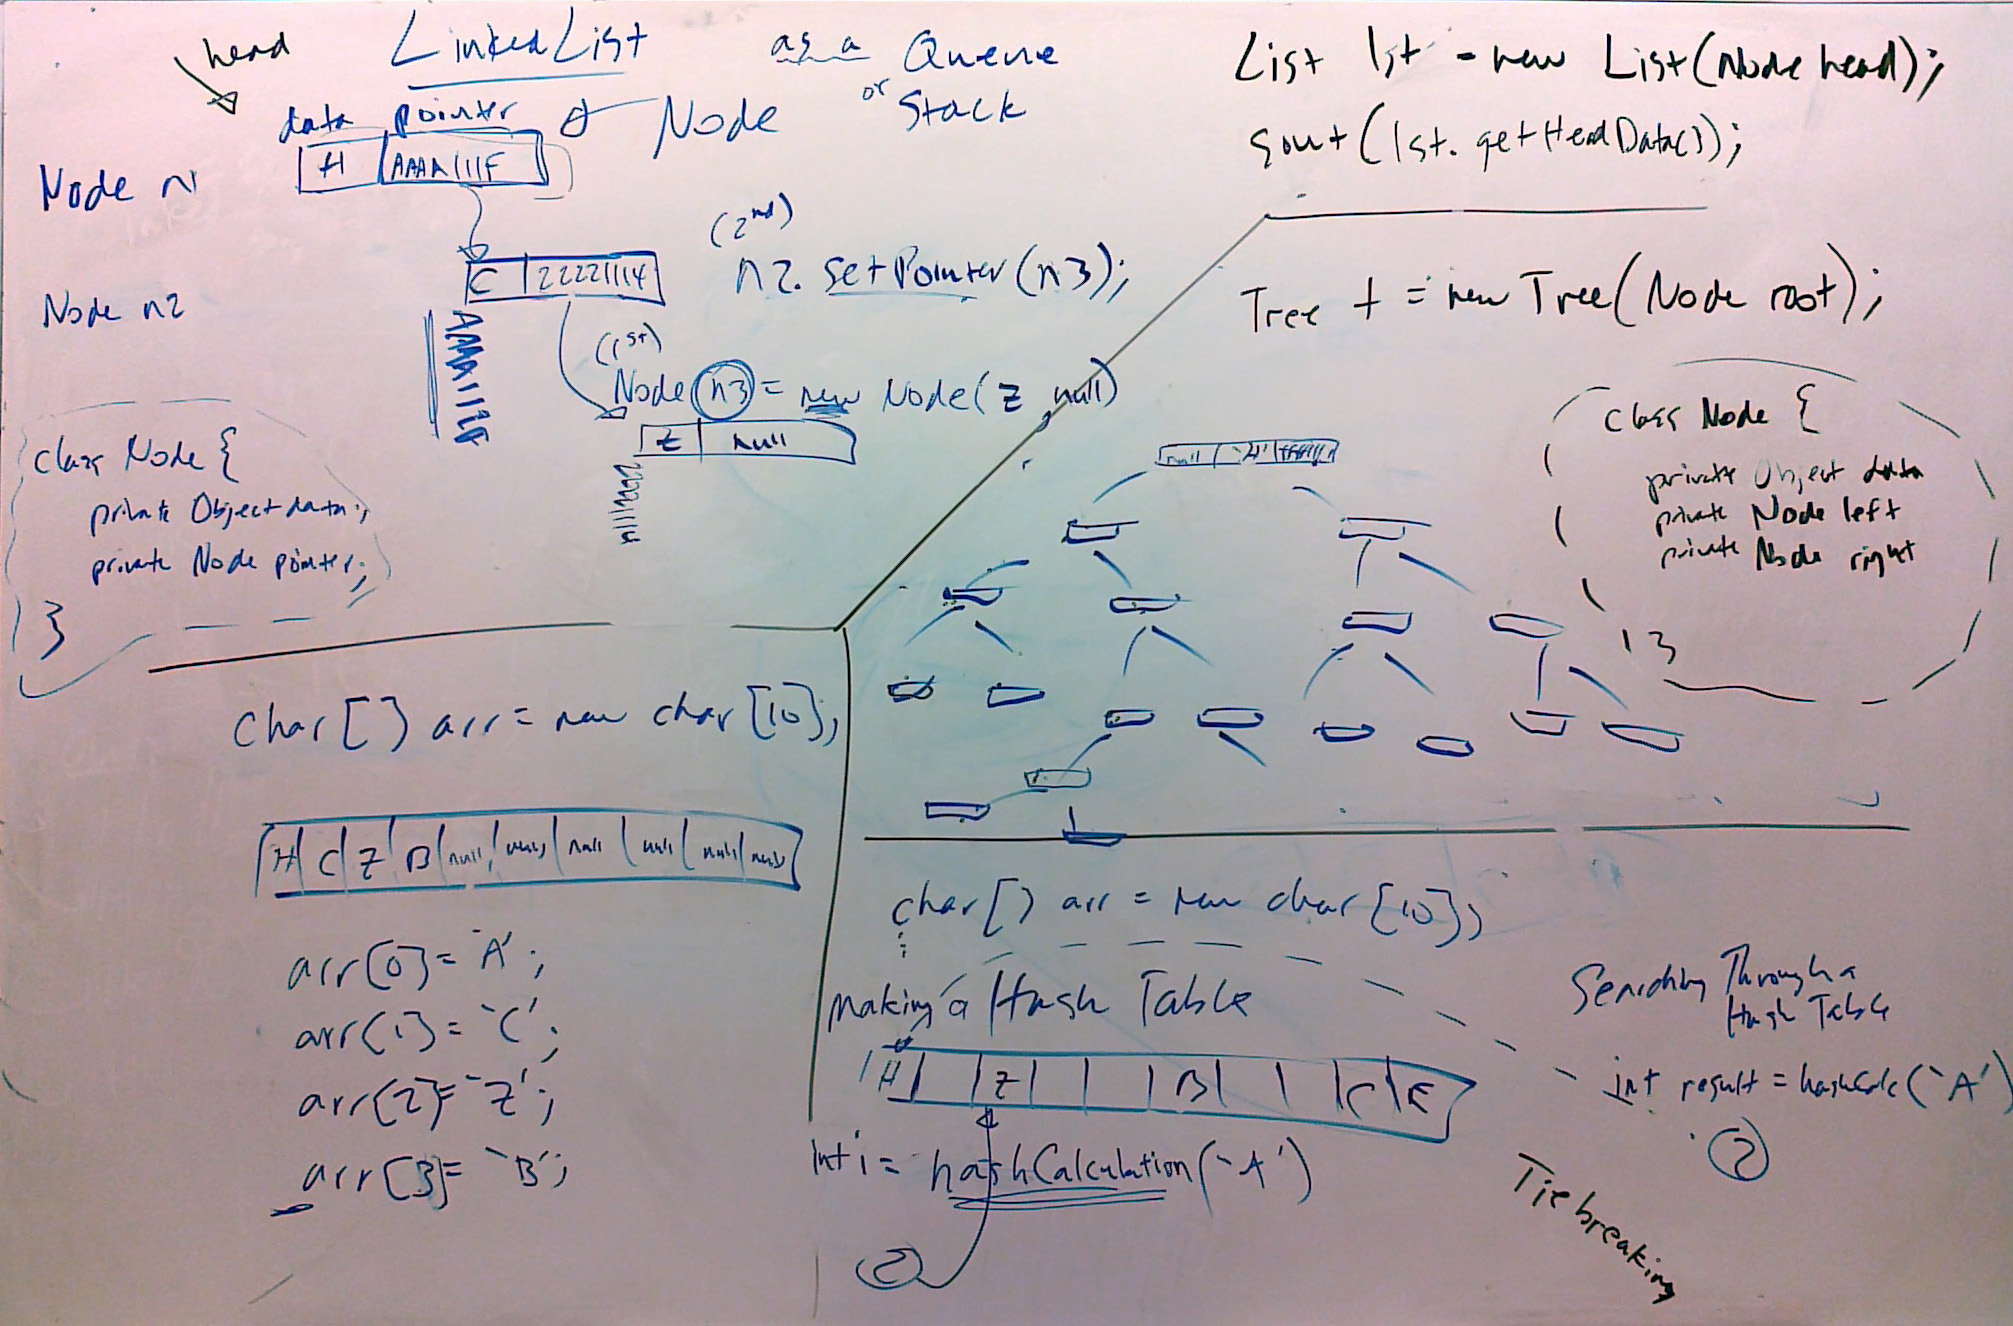 head
LinkedList as a Queue
or Stack
data pointer
Node
Node n1
H AAAA111F
Node n2
C 22221114
AAAA111F
(2nd)
n2.setPointer(n3);
(1st)
Node n3 = new Node(Z, null)
Z null
22221114
class Node {
private Object data;
private Node pointer;
}
List lst = new List(Node head);
sout(lst.getHeadData());
Tree t = new Tree(Node root);
null 'H'
class Node {
private Object data
private Node left
private Node right
}
char[] arr = new char[10];
H C Z B null null null null null null
arr[0] = 'A';
arr[1] = 'C';
arr[2] = 'Z';
arr[3] = 'B';
char[] arr = new char[10];
Making a Hash Table
H Z B C E
int i = hashCalculation('A')
2
Searching Through a
Hash Table
int result = hashCalc('A')
2
Tie breaking